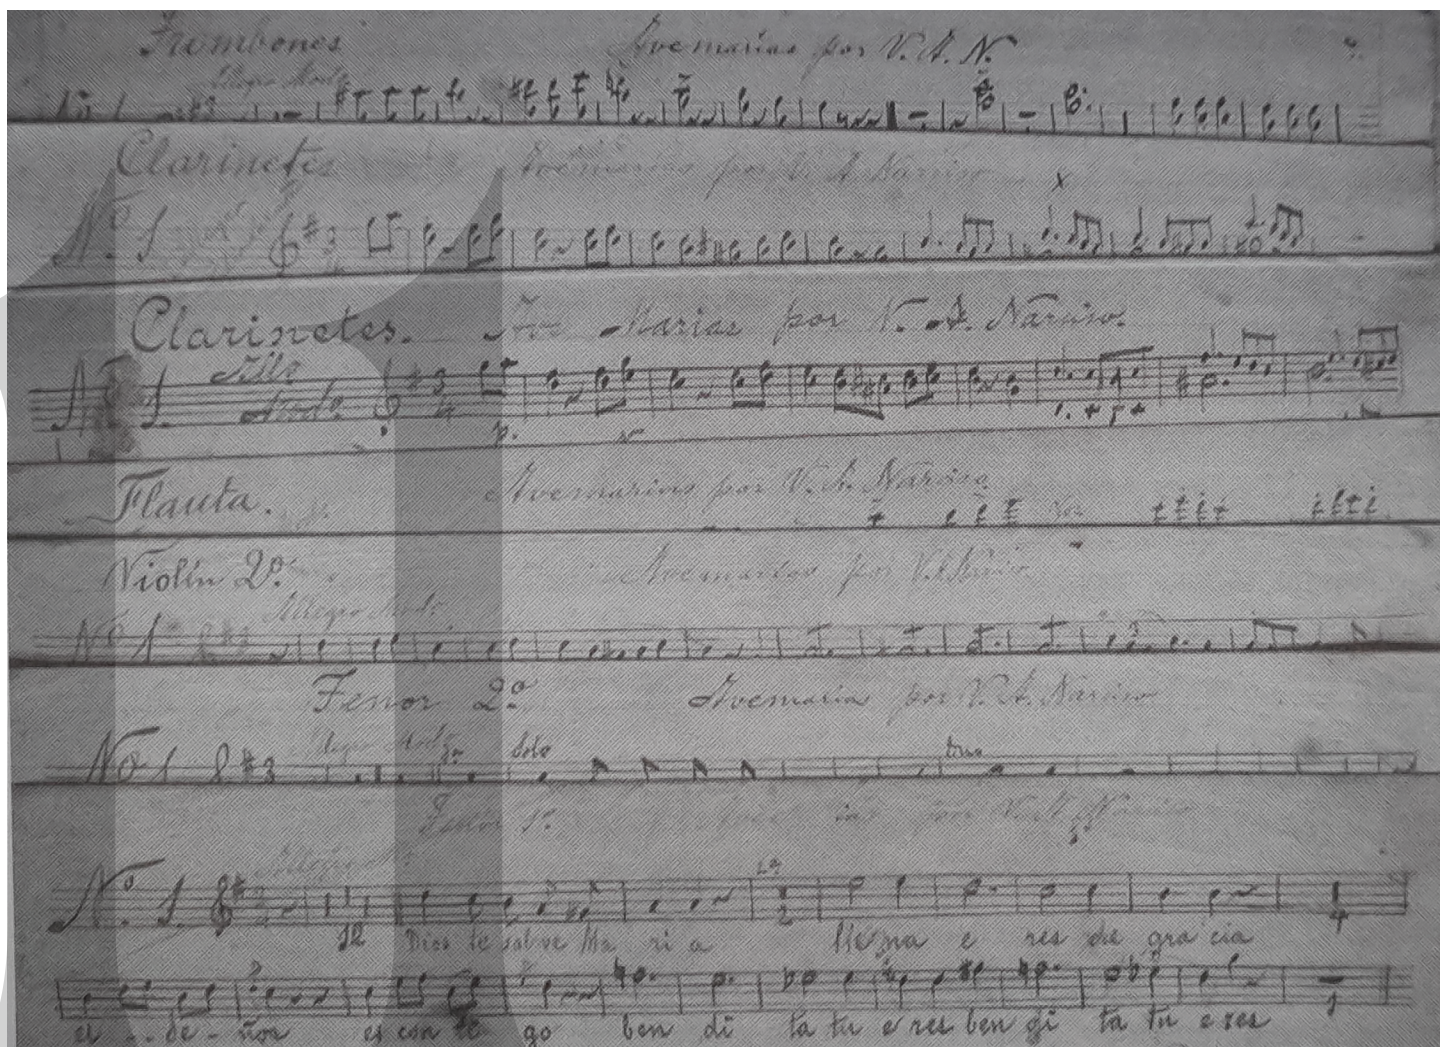 Trombones Avemarias por V. A. N.
Allegro Modo
Clarinetes Avemarias por V. A. Narciso
Nº 1
Clarinetes. Ave Marias por V. A. Narciso.
Nº 1. Allo Modo
p.
Flauta. Avemarias por V. A. Narciso
Violin 2º. Avemarias por V.
Allegro Modo
Nº 1
Tenor 2º Avemaria por V. A. Narciso
Allegro Modo
Nº 1 solo
Tenor 1º por V. A. Narciso
Nº 1.
12 Dios te salve Ma ri a 2 lle na e res de gra cia 4
el - - de - ñor es con ti go ben di ta tu e res ben di ta tu e res 1